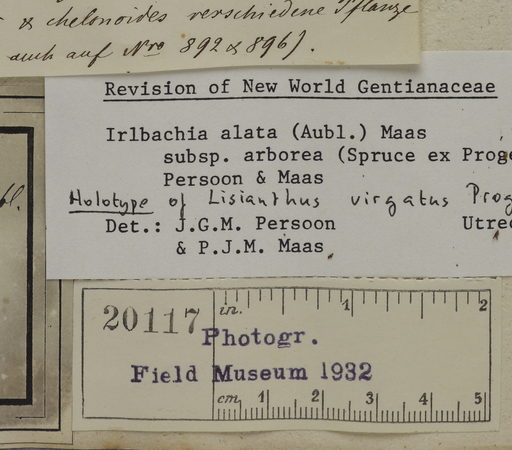 & chelonoides verschiedene Pflanze
auch auf Nro 892 & 896).
Revision of New World Gentianaceae
Irlbachia alata (Aubl.) Maas
subsp. arborea (Spruce ex Proge
Persoon & Maas
Holotype of Lisianthus virgatus Prog
Det.: J.G.M. Persoon Utrec
& P.J.M. Maas
20117
in. 1 2
Photogr.
Field Museum 1932
cm 1 2 3 4 5